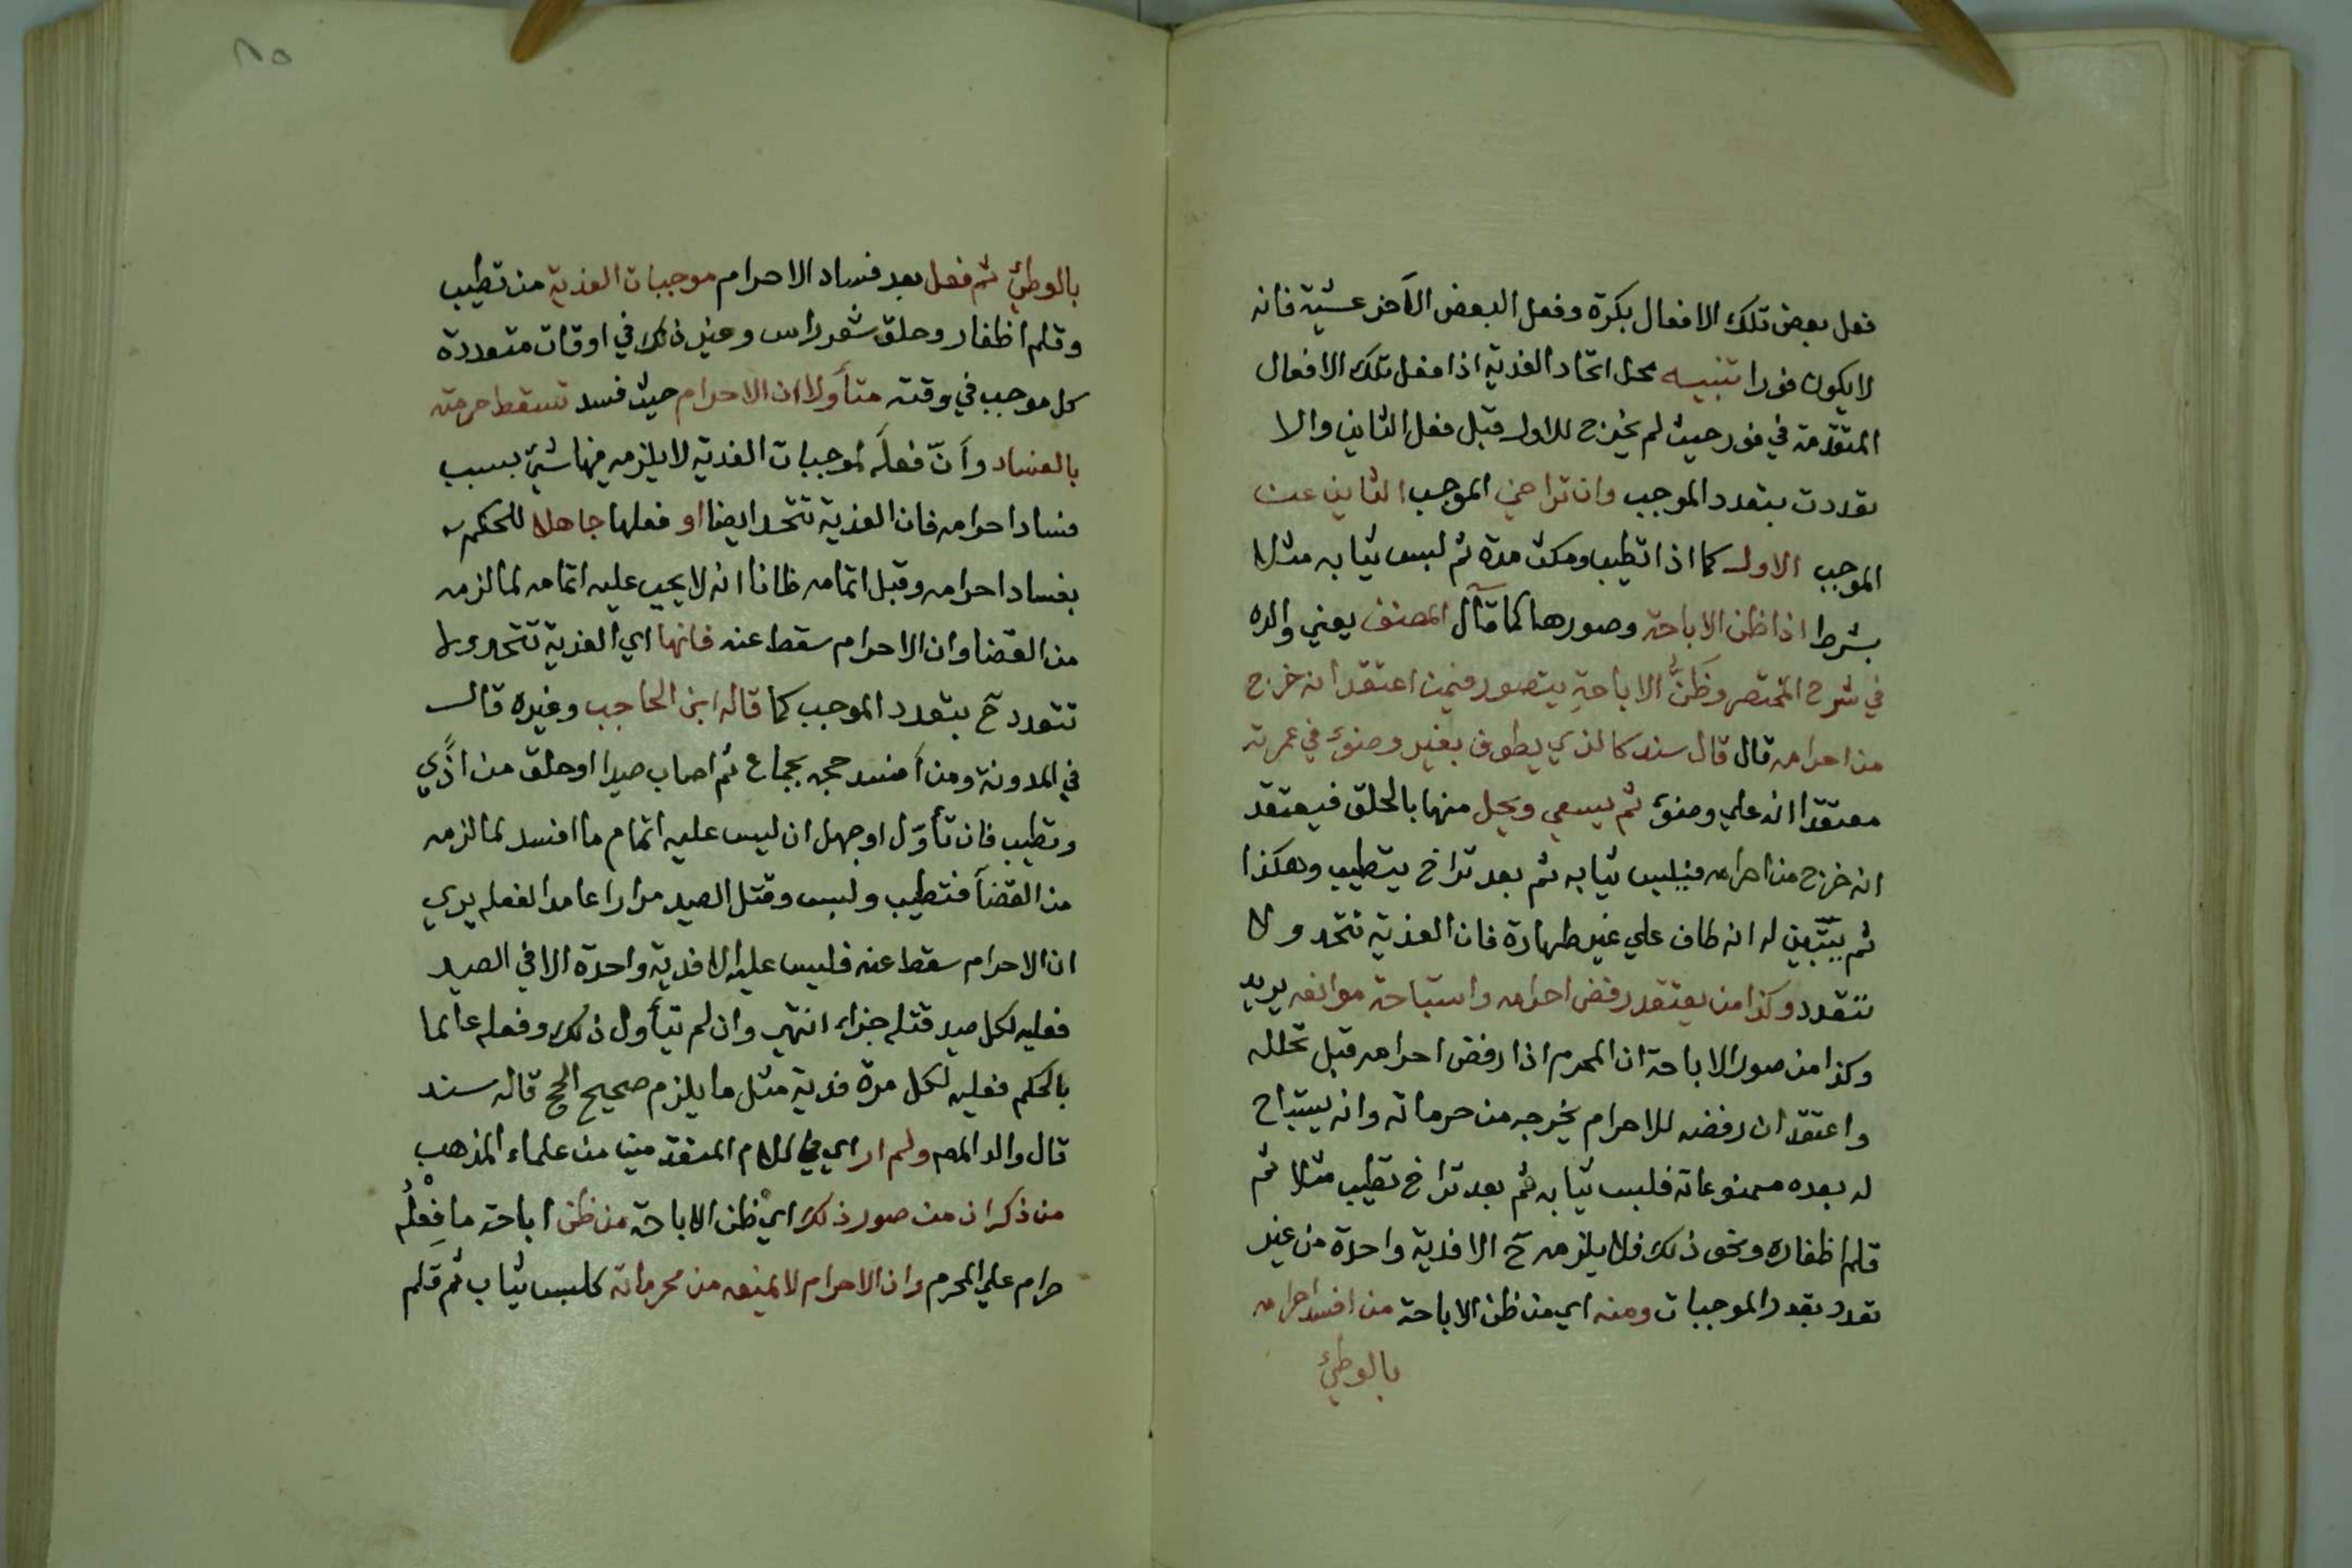 فعل بعض تلك الافعال بكرة وفعل البعض الآخر عشية فانه
لا يكون فورا تنبيه محل اتحاد الفدية اذا فعل تلك الافعال
المتقدمة في فور حيث لم يخرج للاول قبل فعل الثاني والا
تعددت بتعدد الموجب وان تراخي الموجب الثاني عن
الموجب الاول كما اذا تطيب ومكث مدة ثم لبس ثيابه مثلا
بشرط اذا ظن الاباحة وصورها كما قال المصنف يعني والده
في شرح المختصر وظَنُّ الاباحةِ يتصور فيمن اعتقد انه خرج
من احرامه قال قال سند كالذي يطوف بغير وضوء في عمرته
معتقدا انه علي وضوء ثم يسعي ويحل منها بالحلق فيعتقد
انه خرج من احرامه فيلبس ثيابه ثم بعد تراخ يتطيب وهكذا
ثم يتبين له انه طاف علي غير طهارة فان الفدية تتحد ولا
تتعدد وكذا من يعتقد رفض احرامه واستباحة موانعه يريد
وكذا من صور الاباحة ان المحرم اذا رفض احرامه قبل تحلله
واعتقد ان رفضه للاحرام يخرجه من حرماته وانه يستباح
له بعده ممنوعاته فلبس ثيابه ثم بعد تراخ تطيب مثلا ثم
قلم اظفاره ونحو ذلك فلا يلزمه ح الا فدية واحدة من غير
تعدد بتعدد الموجبات ومنه اي من ظن الاباحة من افسد احرامه
بالوطئ
٨٥
بالوطئ ثم فعل بعد فساد الاحرام موجبات الفدية من تطيب
وقلم اظفار وحلق شعر راس وغير ذلك في اوقات متعددة
كل موجب في وقته متأولا ان الاحرام حيث فسد تسقط حرمته
بالفساد وأنّ فعلَه لموجبات الفدية لا يلزمه فيها شئ بسبب
فساد احرامه فان الفدية تتحد ايضا او فعلها جاهلا للحكم
بفساد احرامه وقبل اتمامه ظانا انه لا يجب عليه اتمامه لما لزمه
من القضا وان الاحرام سقط عنه فانها اي الفدية تتحد ولا
تتعدد ح بتعدد الموجب كما قاله ابن الحاجب وغيره قال
في المدونة ومن أفسد حجه بجماع ثم اصاب صيدا او حلق من اذًي
وتطيب فان تأوّل او جهل ان ليس عليه اتمام ما افسد لما لزمه
من القضآ فتطيب ولبس وقتل الصيد مرارا عامدا لفعله يري
ان الاحرام سقط عنه فليس عليه الا فدية واحدة الا في الصيد
فعليه لكل صيد قتله جزاء انتهي وان لم يتأول ذلك وفعله عالما
بالحكم فعليه لكل مرة فدية مثل ما يلزم صحيح الحج قاله سند
قال والد المص ولم ار اي في كلام المتقدمين من علماء المذهب
من ذكر ان من صور ذلك اي ظن الاباحة من ظن اباحة ما فِعْلُه
حرام علي المحرم وان الاحرام لا يمنعه من محرماته كلبس ثياب ثم قَلم